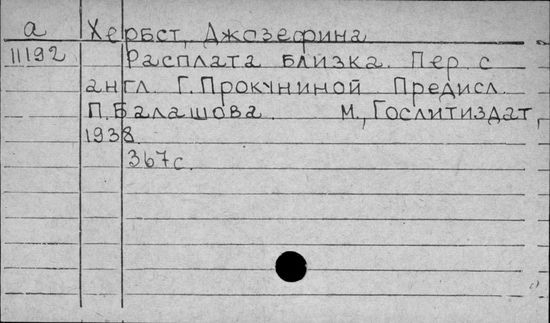 а Хербст, Джозефина
11192 Расплата близка. Пер. с
англ. Г. Прокуниной Предисл.
П. Балашова М., Гослитиздат,
1938.
367с.